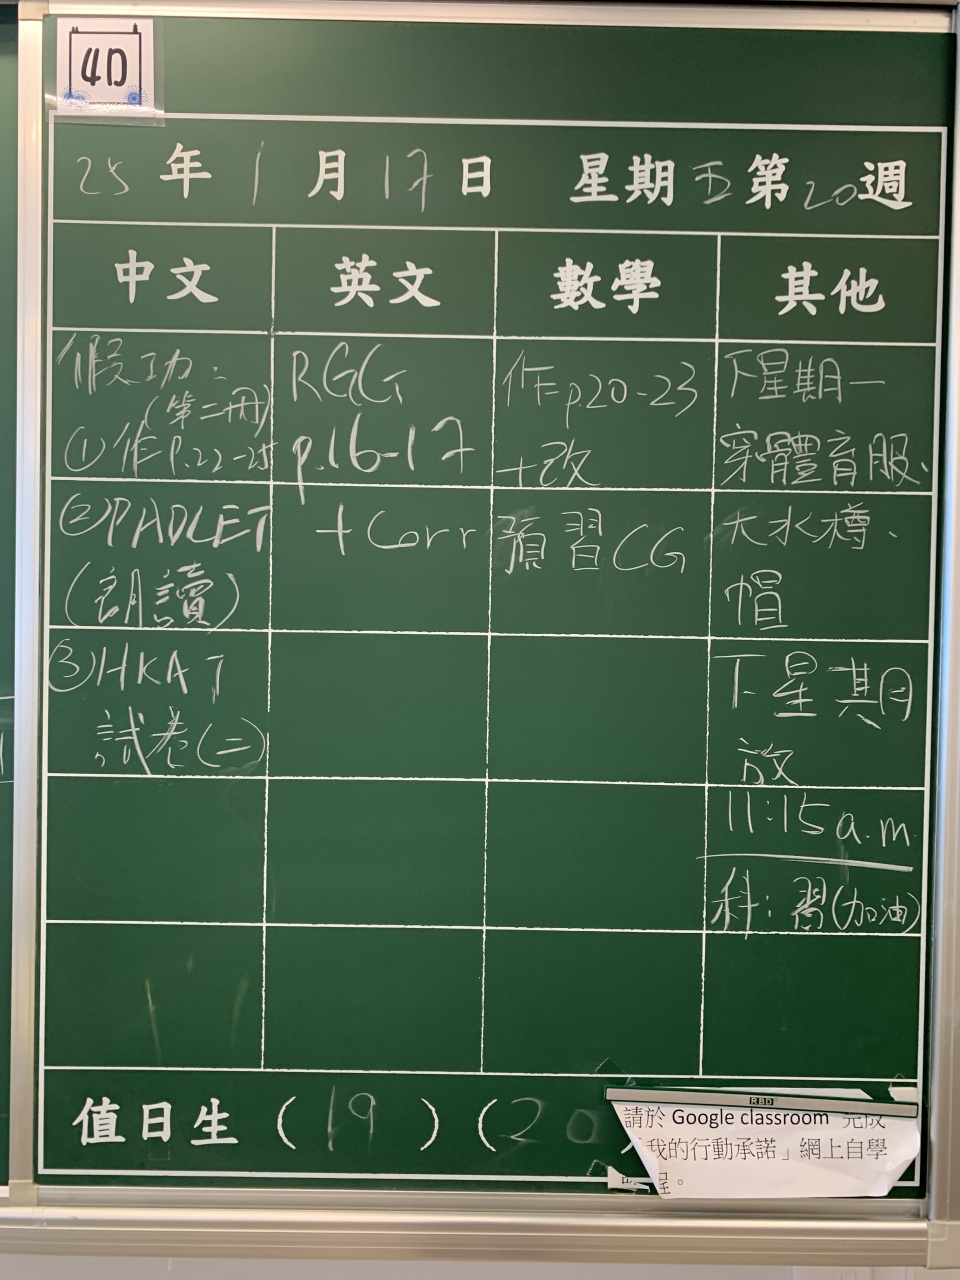 4D
25年1月17日 星期五第20週
中文 英文 數學 其他
假功：
(第二冊)
①作P.22-25
②PADLET
(朗讀)
③HKAT
試卷(二)
RGG
p.16-17
+Corr
作p.20-23
+改
預習CG
下星期一
穿體育服、
大水樽、
帽
下星期
放
11:15a.m.
科：習(加油)
值日生(19)(20
RBD
請於 Google classroom 完成
「我的行動承諾」網上自學
程。